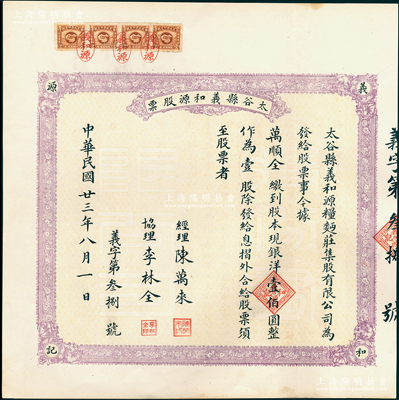 太谷縣義和源股票
義
源
和
記
太谷縣義和源糧麵莊集股有限公司為
發給股票事今據
萬順全 繳到股本現銀洋壹佰圓整
作為壹 股除發給息摺外合給股票須
至股票者
經理 陳萬來
協理 李林全
義字第叁捌號
中華民國廿三年八月一日
義字第叁捌號
義和源
義和源
義和源